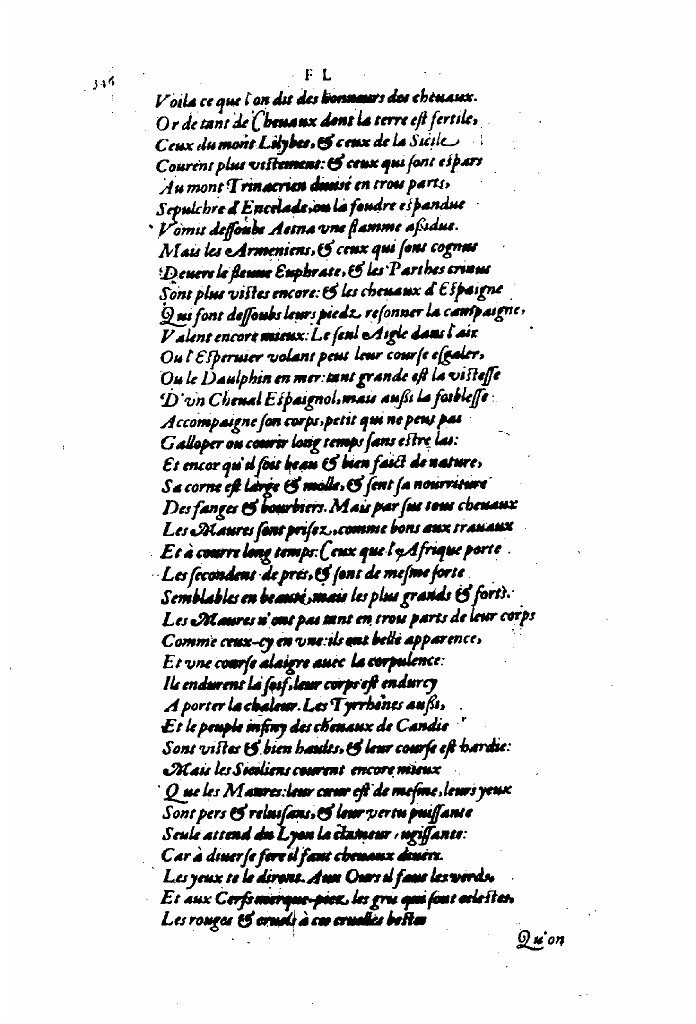 346
F L
Voila ce que l'on dit des honneurs des cheuaux.
Or de tant de Cheuaux dont la terre est fertile,
Ceux du mont Lilybee, & ceux de la Sicile
Courent plus vistement: & ceux qui sont espars
Au mont Trinacrien diuisé en trou parts,
Sepulchre d'Encelade, ou la foudre espandue
Vomit dessoubs Aetna vne flamme aßidue.
Mais les Armeniens, & ceux qui sont cognus
Deuers le fleuue Euphrate, & les Parthes crinus
Sont plus vistes encore: & les cheuaux d'Espaigne
Qui font dessoubs leurs piedz resonner la campaigne,
Valent encore mieux: Le seul Aigle dans l'air
Ou l'Esperuier volant peut leur course esgaler,
Ou le Daulphin en mer: tant grande est la vistesse
D'vn Cheual Espaignol, mais außi la foiblesse
Accompaigne son corps, petit qui ne peut pas
Galloper ou courir long temps sans estre las:
Et encor qu'il soit beau & bien faict de nature,
Sa corne est large & molle, & sent sa nourriture
Des fanges & bourbiers. Mais par sus tous cheuaux
Les Maures sont prisez, comme bons aux trauaux
Et à courre long temps: Ceux que l'Afrique porte
Les secondent de pres, & sont de mesme sorte
Semblables en beauté, mais les plus grands & forts.
Les Maures n'ont pas tant en trou parts de leur corps
Comme ceux-cy en vne: ils ont belle apparence,
Et vne course alaigre auec la corpulence:
Ils endurent la soif, leur corps est endurcy
A porter la chaleur. Les Tyrrhenes außi,
Et le peuple infiny des cheuaux de Candie
Sont vistes & bien haults, & leur course est hardie:
Mais les Siciliens courent encore mieux
Que les Maures: leur cœur est de mesme, leurs yeux
Sont pers & reluisans, & leur vertu puissante
Seule attend du Lyon la clameur rugissante:
Car à diuerse fere il faut cheuaux diuers.
Les yeux te le diront. Aux Ours il faut les verds,
Et aux Cerfs merque-piez, les gris qui sont celestes,
Les rouges & cruels à ces cruelles bestes
Qu'on